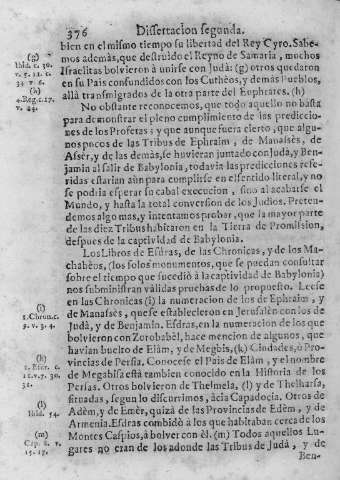 376 Dissertacion segunda.
bien en el mismo tiempo su libertad del Rey Cyro. Sabe-
mos además, que destruido el Reyno de Samaria, muchos
Israelitas bolvieron à unirse con Judà: (g) otros quedaron
en su Pais confundidos con los Cuthèos, y demás Pueblos,
allà transmigrados de la otra parte del Euphrates. (h)
No obstante reconocemos, que todo aquello no basta
para demonstrar el pleno cumplimiento de las predicciones
de los Profetas; y que aunque fuera cierto, que algu-
nos pocos de las Tribus de Ephraim, de Manassès, de
Assér, y de las demàs, se huvieran juntado con Judà, y Ben-
jamin al salir de Babylonia, todavia las predicciones refe-
ridas estarian aùn para cumplirse en el sentido literal, y no
se podria esperar su cabal execucion, sino al acabarse el
Mundo, y hasta la total conversion de los Judios. Preten-
demos algo mas, y intentamos probar, que la mayor parte
de las diez Tribus habitaron en la Tierra de Promission,
despues de la captividad de Babylonia.
Los Libros de Esdras, de las Chronicas, y de los Ma-
chabèos, (los solos monumentos, que se puedan consultar
sobre el tiempo que sucediò à la captividad de Babylonia)
nos subministran vàlidas pruebas de lo propuesto. Leese
en las Chronicas (i) la numeracion de los de Ephraim, y
de Manassès, que se establecieron en Jerusalèn con los de
Judà, y de Benjamin. Esdras, en la numeracion de los que
bolvieron con Zorobabèl, hace mencion de algunos, que
havian buelto de Elàm, y de Megbis, (k) Ciudades, ò Pro-
vincias de Persia. Conocese el Pais de Elàm, y el nombre
de Megabisa està tambien conocido en la Historia de los
Persas. Otros bolvieron de Thelmela, (l) y de Thelharsa,
situadas, segun lo discurrimos, àcia Capadocia. Otros de
Adèm, y de Emèr, quizà de las Provincias de Edèm, y de
Armenia. Esdras combidò à los que habitaban cerca de los
Montes Caspios, à bolver con èl. (m) Todos aquellos Lu-
gares no eran de los adonde las Tribus de Judà, y de
Ben-
(g)
Ibid. c. 30.
v. 5. 11. c.
34 v. 6.
(h)
4. Reg. c. 17.
v. 24.
(i)
1. Chron. c.
9. v. 3. 4.
(k)
1. Esdr. c.
11. v. 7. 30.
31.
(l)
Ibid. 54.
(m)
Cap. 8. v.
15. 17.